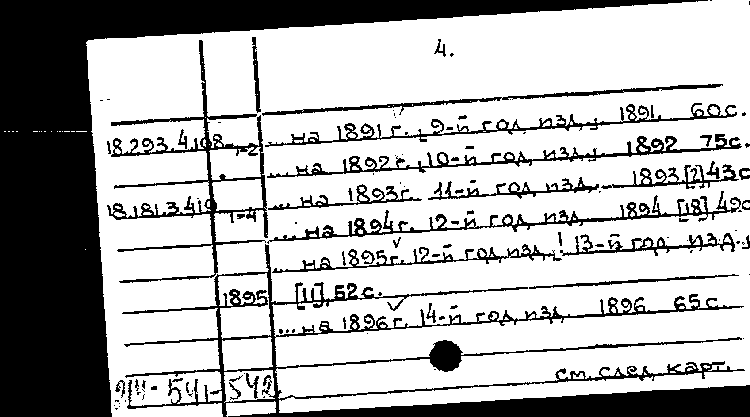 4.
18.293.4.198 1=2 ... на 1891 г., 9-й год изд., 1891. 60 с.
... на 1892 г., 10-й год изд., 1892 75 с.
18.181.3.419 1=4 ... на 1893 г. 11-й год изд. 1893 [2], 43 с
... на 1894 г. 12-й год изд. 1894. [18], 49 с
... на 1895 г. 12-й год изд. ! 13-й год изд.,
1895 [11], 52 с.
... на 1896 г. 14-й год изд. 1896. 65 с.
см. след. карт.
541-542